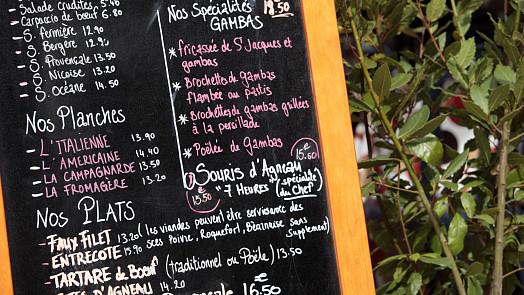 Salade Crudites 5.90
Carpaccio de bœuf 6.80
S. Fermière 12.90
S. Bergère 12.90
S. Provençale 13.50
S. Niçoise 13.20
S. Océane 14.50
Nos Planches
L'ITALIENNE 13.90
L'AMERICAINE 14.40
LA CAMPAGNARDE 13.50
LA FROMAGÈRE 13.20
Nos Spécialités
GAMBAS
19.50
* Fricassée de St Jacques et
gambas
* Brochettes de gambas
flambée au pastis
* Brochettes de gambas grillées
à la persillade
* Poêlée de Gambas
Souris d'Agneau 15.50€
"7 HEURES" (spécialité
du Chef)
15.50
NOS PLATS
(les viandes peuvent être servies avec des
- FAUX FILET 13.20 sces Poivre, Roquefort, Béarnaise sans
- ENTRECOTE 15.90 Supplement)
- TARTARE de Bœuf (traditionnel ou Poêlé) 13.50
D'AGNEAU 14.50
16.50